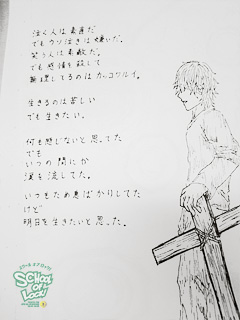 泣く人は素直だ
でもウソ泣きは嫌いだ。
笑う人は素敵だ。
でも感情を殺して
無理してるのはカッコワルイ。
生きるのは苦しい
でも生きたい。
何も感じないと思ってた
でも
いつの間にか
涙を流してた。
いつもため息ばかりしてた
けど
明日を生きたいと思った。
SCHOOL
OF
LOCK!